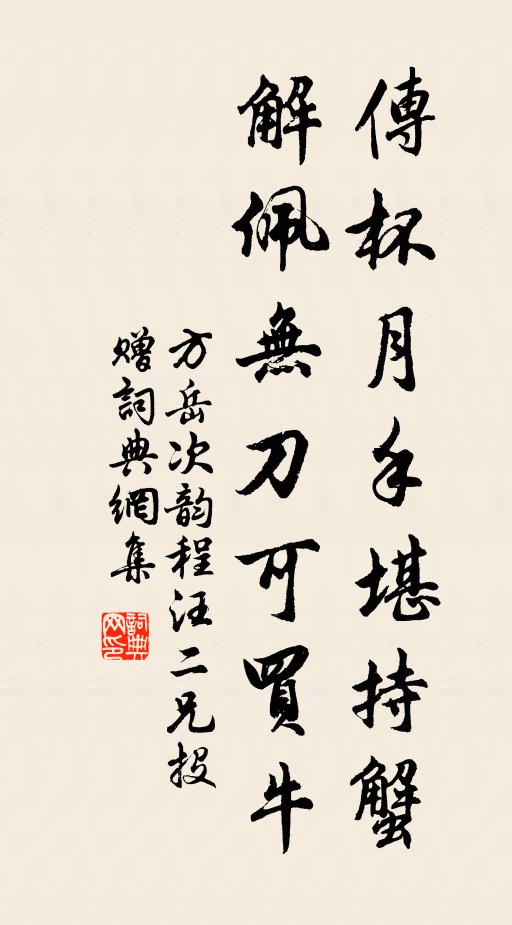 傳杯月手堪持蟹
解佩無刀可買牛
方岳次韵程汪二兄投
贈詞典網集
詞典
网印